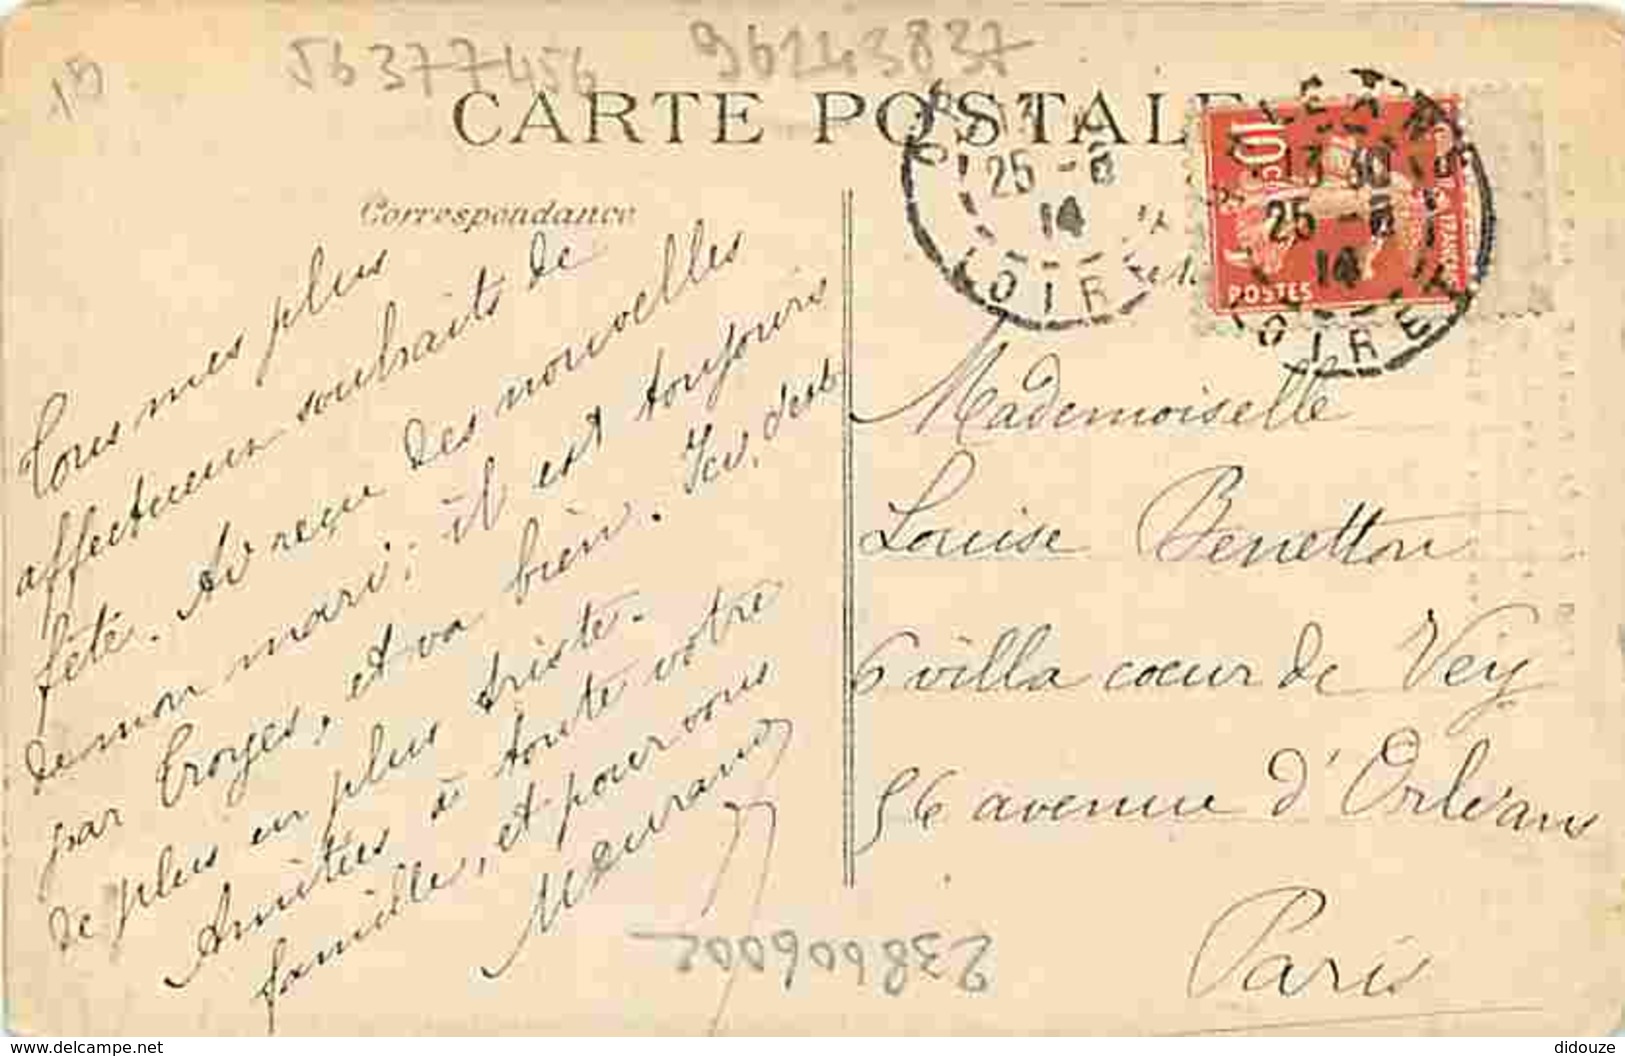 19
56377456
96243837
CARTE POSTALE
Correspondance
25 -6
14
LOIR
ORLEANS
13 30
25 -6
14
LOIRET
10c
POSTES
Tous mes plus
affectueux souhaits de
fête. Ai reçu des nouvelles
de mon mari; il est toujours
par Troyes, et va bien. Ici, c'est
de plus en plus triste.
Amitiés à toute votre
famille, et pour vous
Mademoiselle
Louise Benetton
6 villa cœur de Vey
56 avenue d'Orléans
Paris
238606002
delcampe.net
didouze